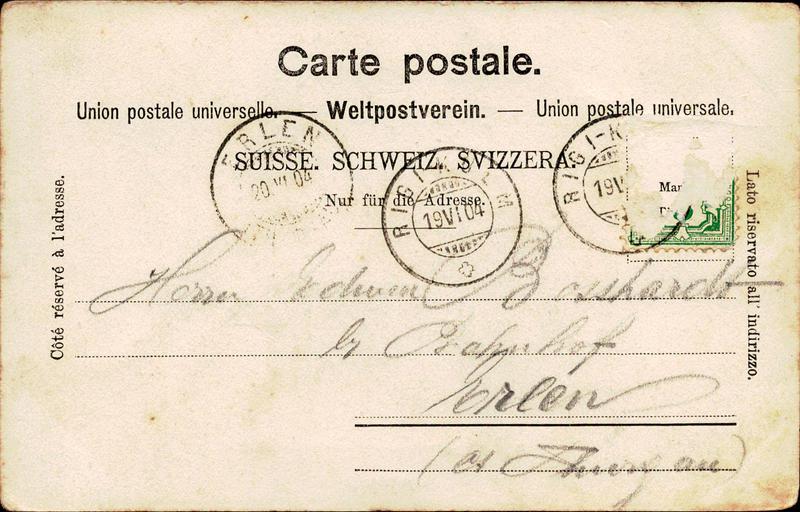 Carte postale.
Union postale universelle. — Weltpostverein. — Union postale universale.
SUISSE. SCHWEIZ. SVIZZERA.
Nur für die Adresse.
Côté réservé à l'adresse.
Lato riservato all' indirizzo.
ERLEN
20 VI 04
RIGI-KULM
19 VI 04
RIGI-K
19 V
Mar
Herrn Edwin Bosshardt
Bahnhof
Erlen
Thurgau)